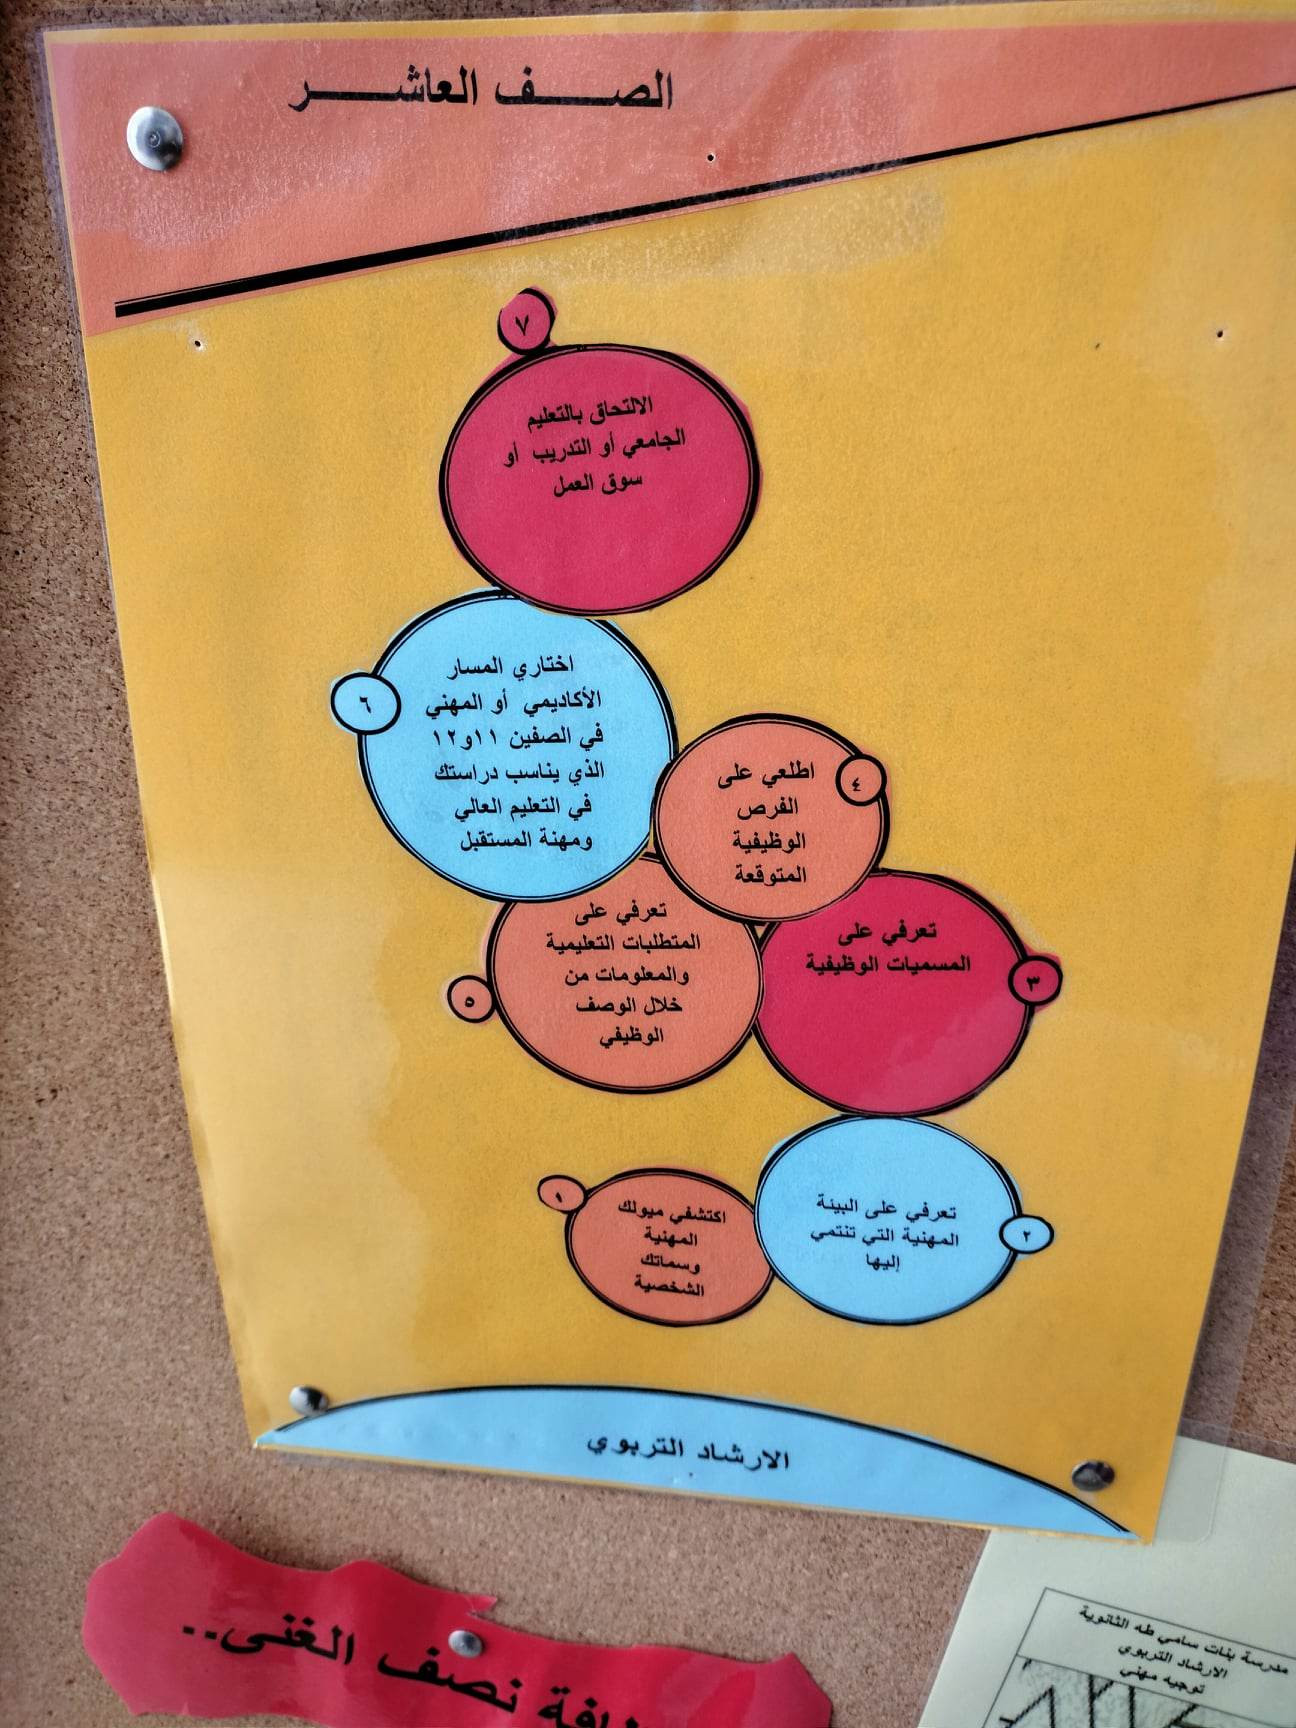 الصف العاشر
٧
الالتحاق بالتعليم
الجامعي أو التدريب أو
سوق العمل
٦
اختاري المسار
الأكاديمي أو المهني
في الصفين ١١و١٢
الذي يناسب دراستك
في التعليم العالي
ومهنة المستقبل
٤
اطلعي على
الفرص
الوظيفية
المتوقعة
٥
تعرفي على
المتطلبات التعليمية
والمعلومات من
خلال الوصف
الوظيفي
٣
تعرفي على
المسميات الوظيفية
٢
تعرفي على البيئة
المهنية التي تنتمي
إليها
١
اكتشفي ميولك
المهنية
وسماتك
الشخصية
الارشاد التربوي
نصف الغنى..
مدرسة بنات سامي طه الثانوية
الارشاد التربوي
توجيه مهني